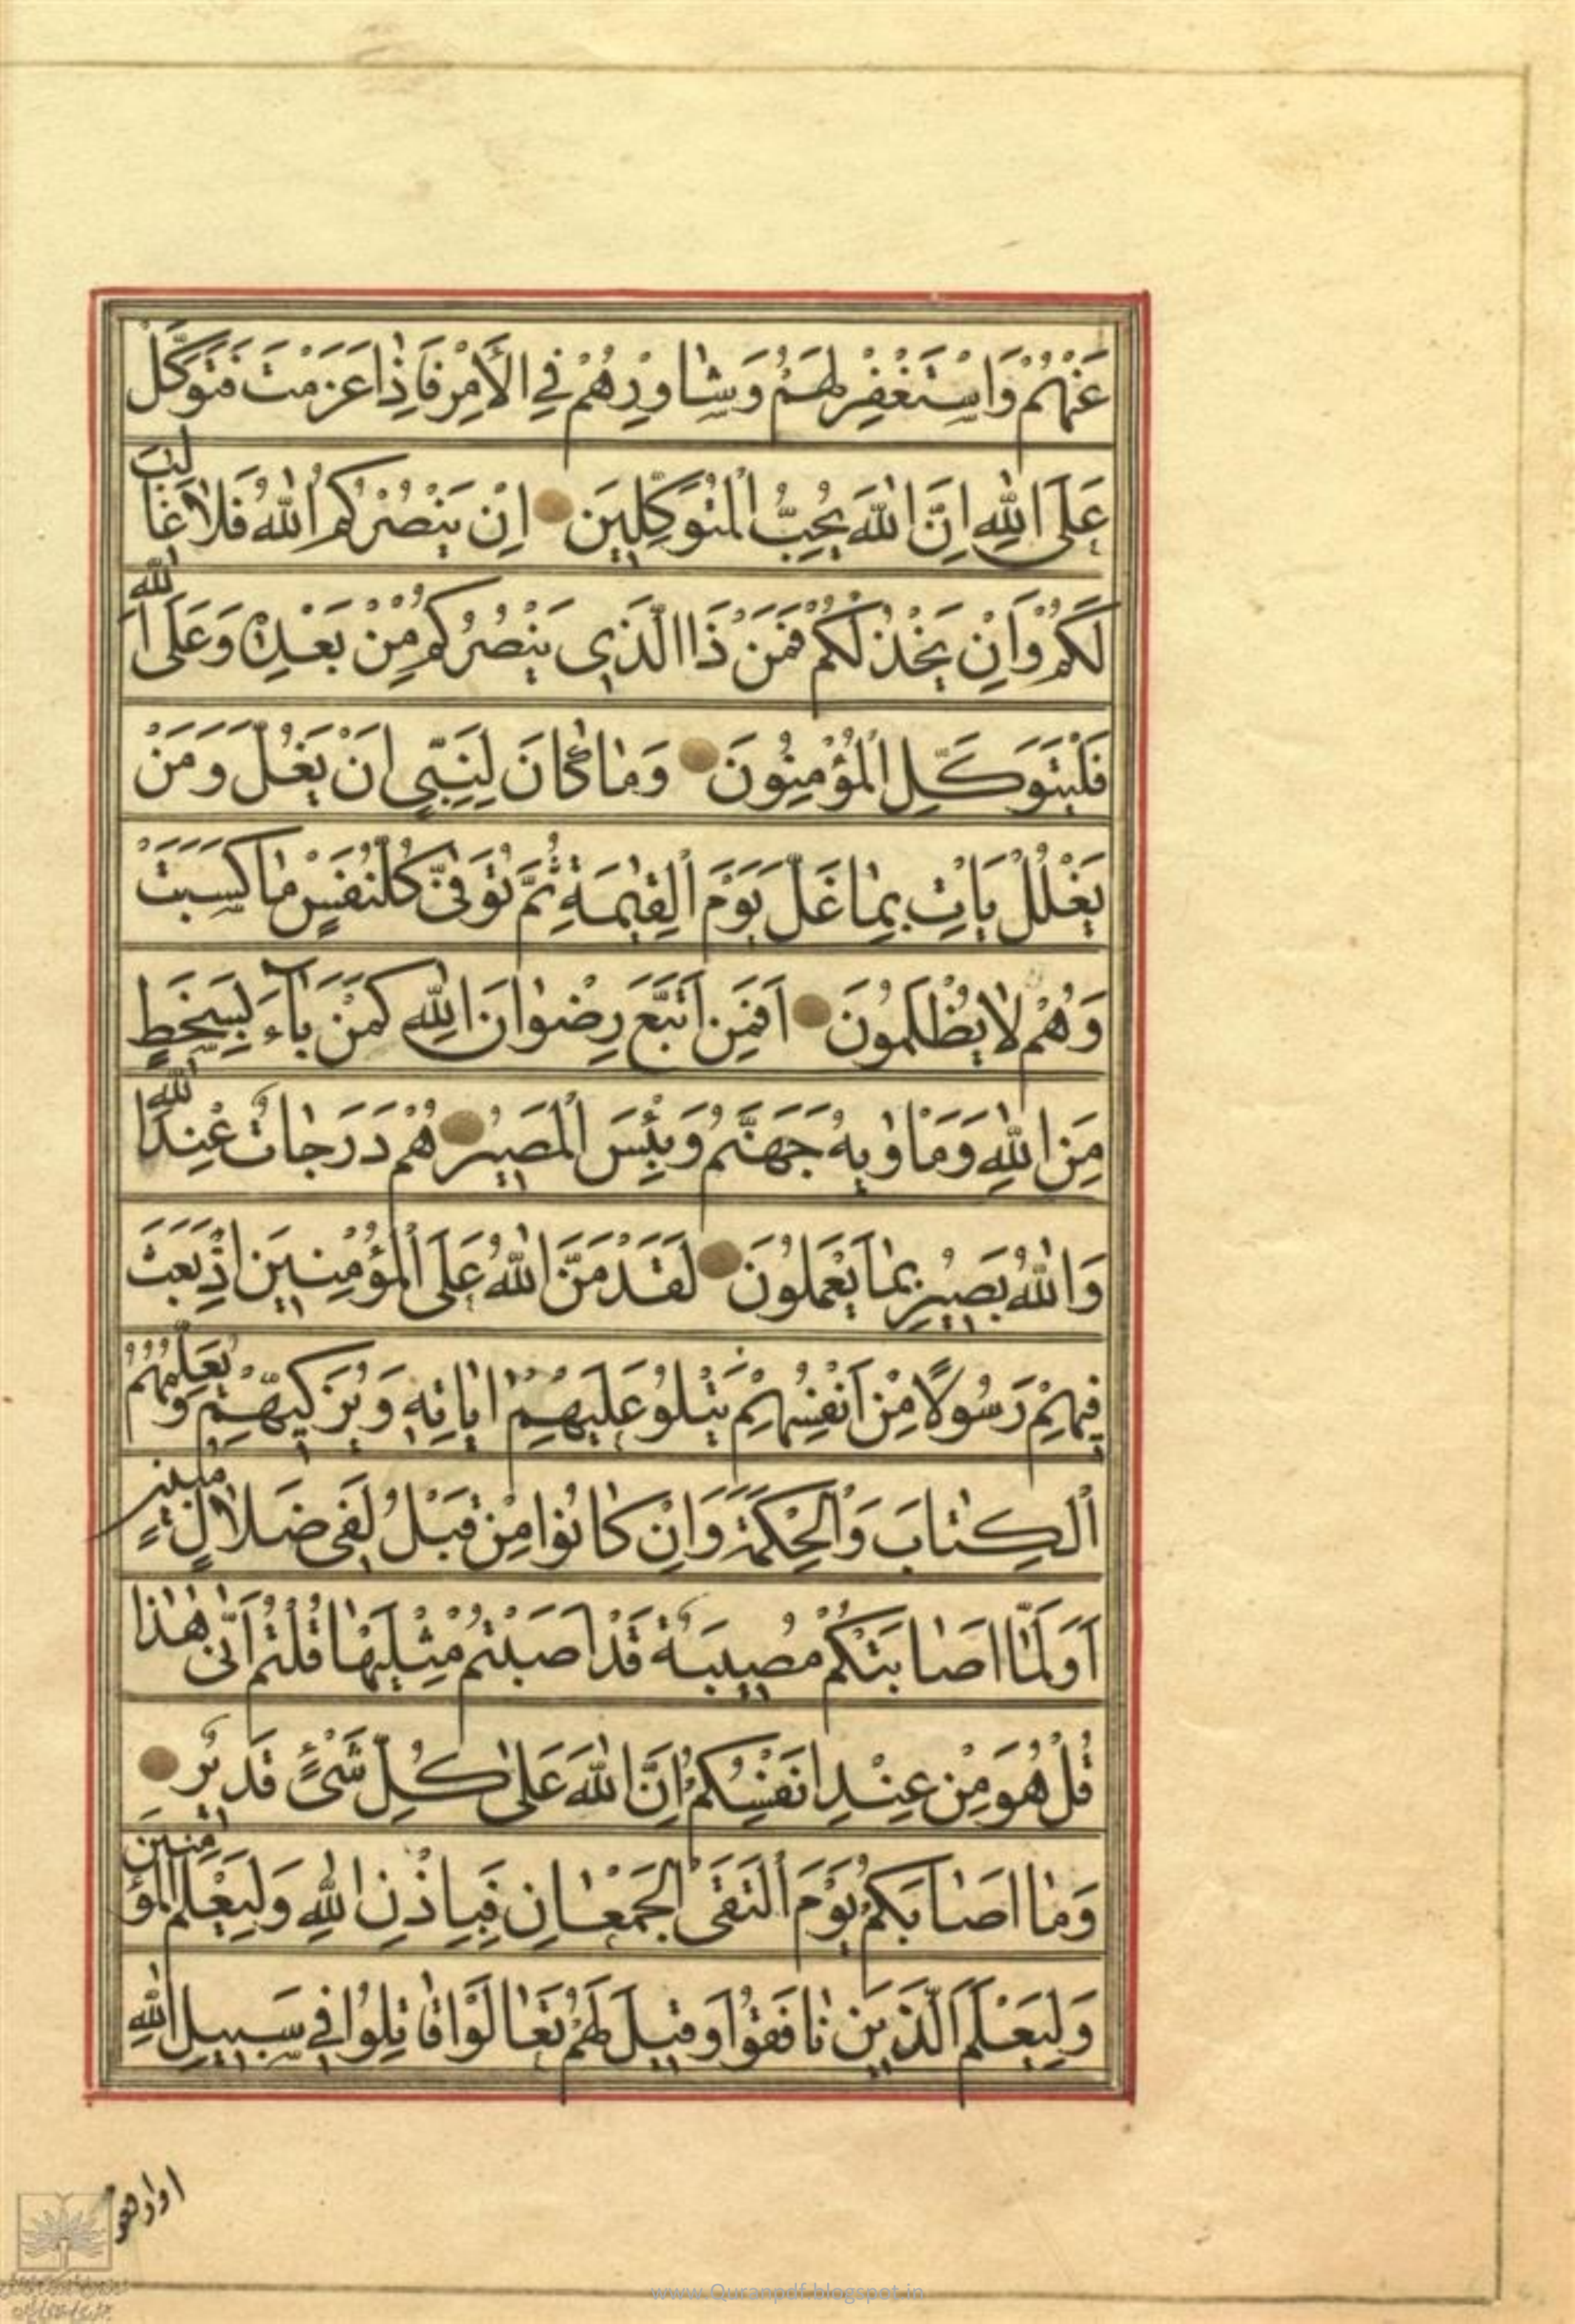 عَنْهُمْ وَاسْتَغْفِرْ لَهُمْ وَشٰاوِرْهُمْ فِي الْأَمْرِ فَاِذٰا عَزَمْتَ فَتَوَكَّلْ
عَلَى اللّٰهِ اِنَّ اللّٰهَ يُحِبُّ الْمُتَوَكِّلِينَ اِنْ يَنْصُرْكُمُ اللّٰهُ فَلاٰ غٰالِبَ
لَكُمْ وَاِنْ يَخْذُلْكُمْ فَمَنْ ذَا الَّذِي يَنْصُرُكُمْ مِنْ بَعْدِهِ وَعَلَى اللّٰهِ
فَلْيَتَوَكَّلِ الْمُؤْمِنُونَ وَمٰا كٰانَ لِنَبِيٍّ اَنْ يَغُلَّ وَمَنْ
يَغْلُلْ يَأْتِ بِمٰا غَلَّ يَوْمَ الْقِيٰمَةِ ثُمَّ تُوَفّٰى كُلُّ نَفْسٍ مٰا كَسَبَتْ
وَهُمْ لاٰ يُظْلَمُونَ اَفَمَنِ اتَّبَعَ رِضْوٰانَ اللّٰهِ كَمَنْ بٰآءَ بِسَخَطٍ
مِنَ اللّٰهِ وَمَأْوٰيهُ جَهَنَّمُ وَبِئْسَ الْمَصِيرُ هُمْ دَرَجٰاتٌ عِنْدَ اللّٰهِ
وَاللّٰهُ بَصِيرٌ بِمٰا يَعْمَلُونَ لَقَدْ مَنَّ اللّٰهُ عَلَى الْمُؤْمِنِينَ اِذْ بَعَثَ
فِيهِمْ رَسُولًا مِنْ اَنْفُسِهِمْ يَتْلُو عَلَيْهِمْ اٰيٰاتِهِ وَيُزَكِّيهِمْ وَيُعَلِّمُهُمُ
الْكِتٰابَ وَالْحِكْمَةَ وَاِنْ كٰانُوا مِنْ قَبْلُ لَفِي ضَلاٰلٍ مُبِينٍ
اَوَلَمّٰا اَصٰابَتْكُمْ مُصِيبَةٌ قَدْ اَصَبْتُمْ مِثْلَيْهٰا قُلْتُمْ اَنّٰى هٰذٰا
قُلْ هُوَ مِنْ عِنْدِ اَنْفُسِكُمْ اِنَّ اللّٰهَ عَلٰى كُلِّ شَيْءٍ قَدِيرٌ
وَمٰا اَصٰابَكُمْ يَوْمَ الْتَقَى الْجَمْعٰانِ فَبِاِذْنِ اللّٰهِ وَلِيَعْلَمَ الْمُؤْمِنِينَ
وَلِيَعْلَمَ الَّذِينَ نٰافَقُوا وَقِيلَ لَهُمْ تَعٰالَوْا قٰاتِلُوا فِي سَبِيلِ اللّٰهِ
www.Quranpdf.blogspot.in